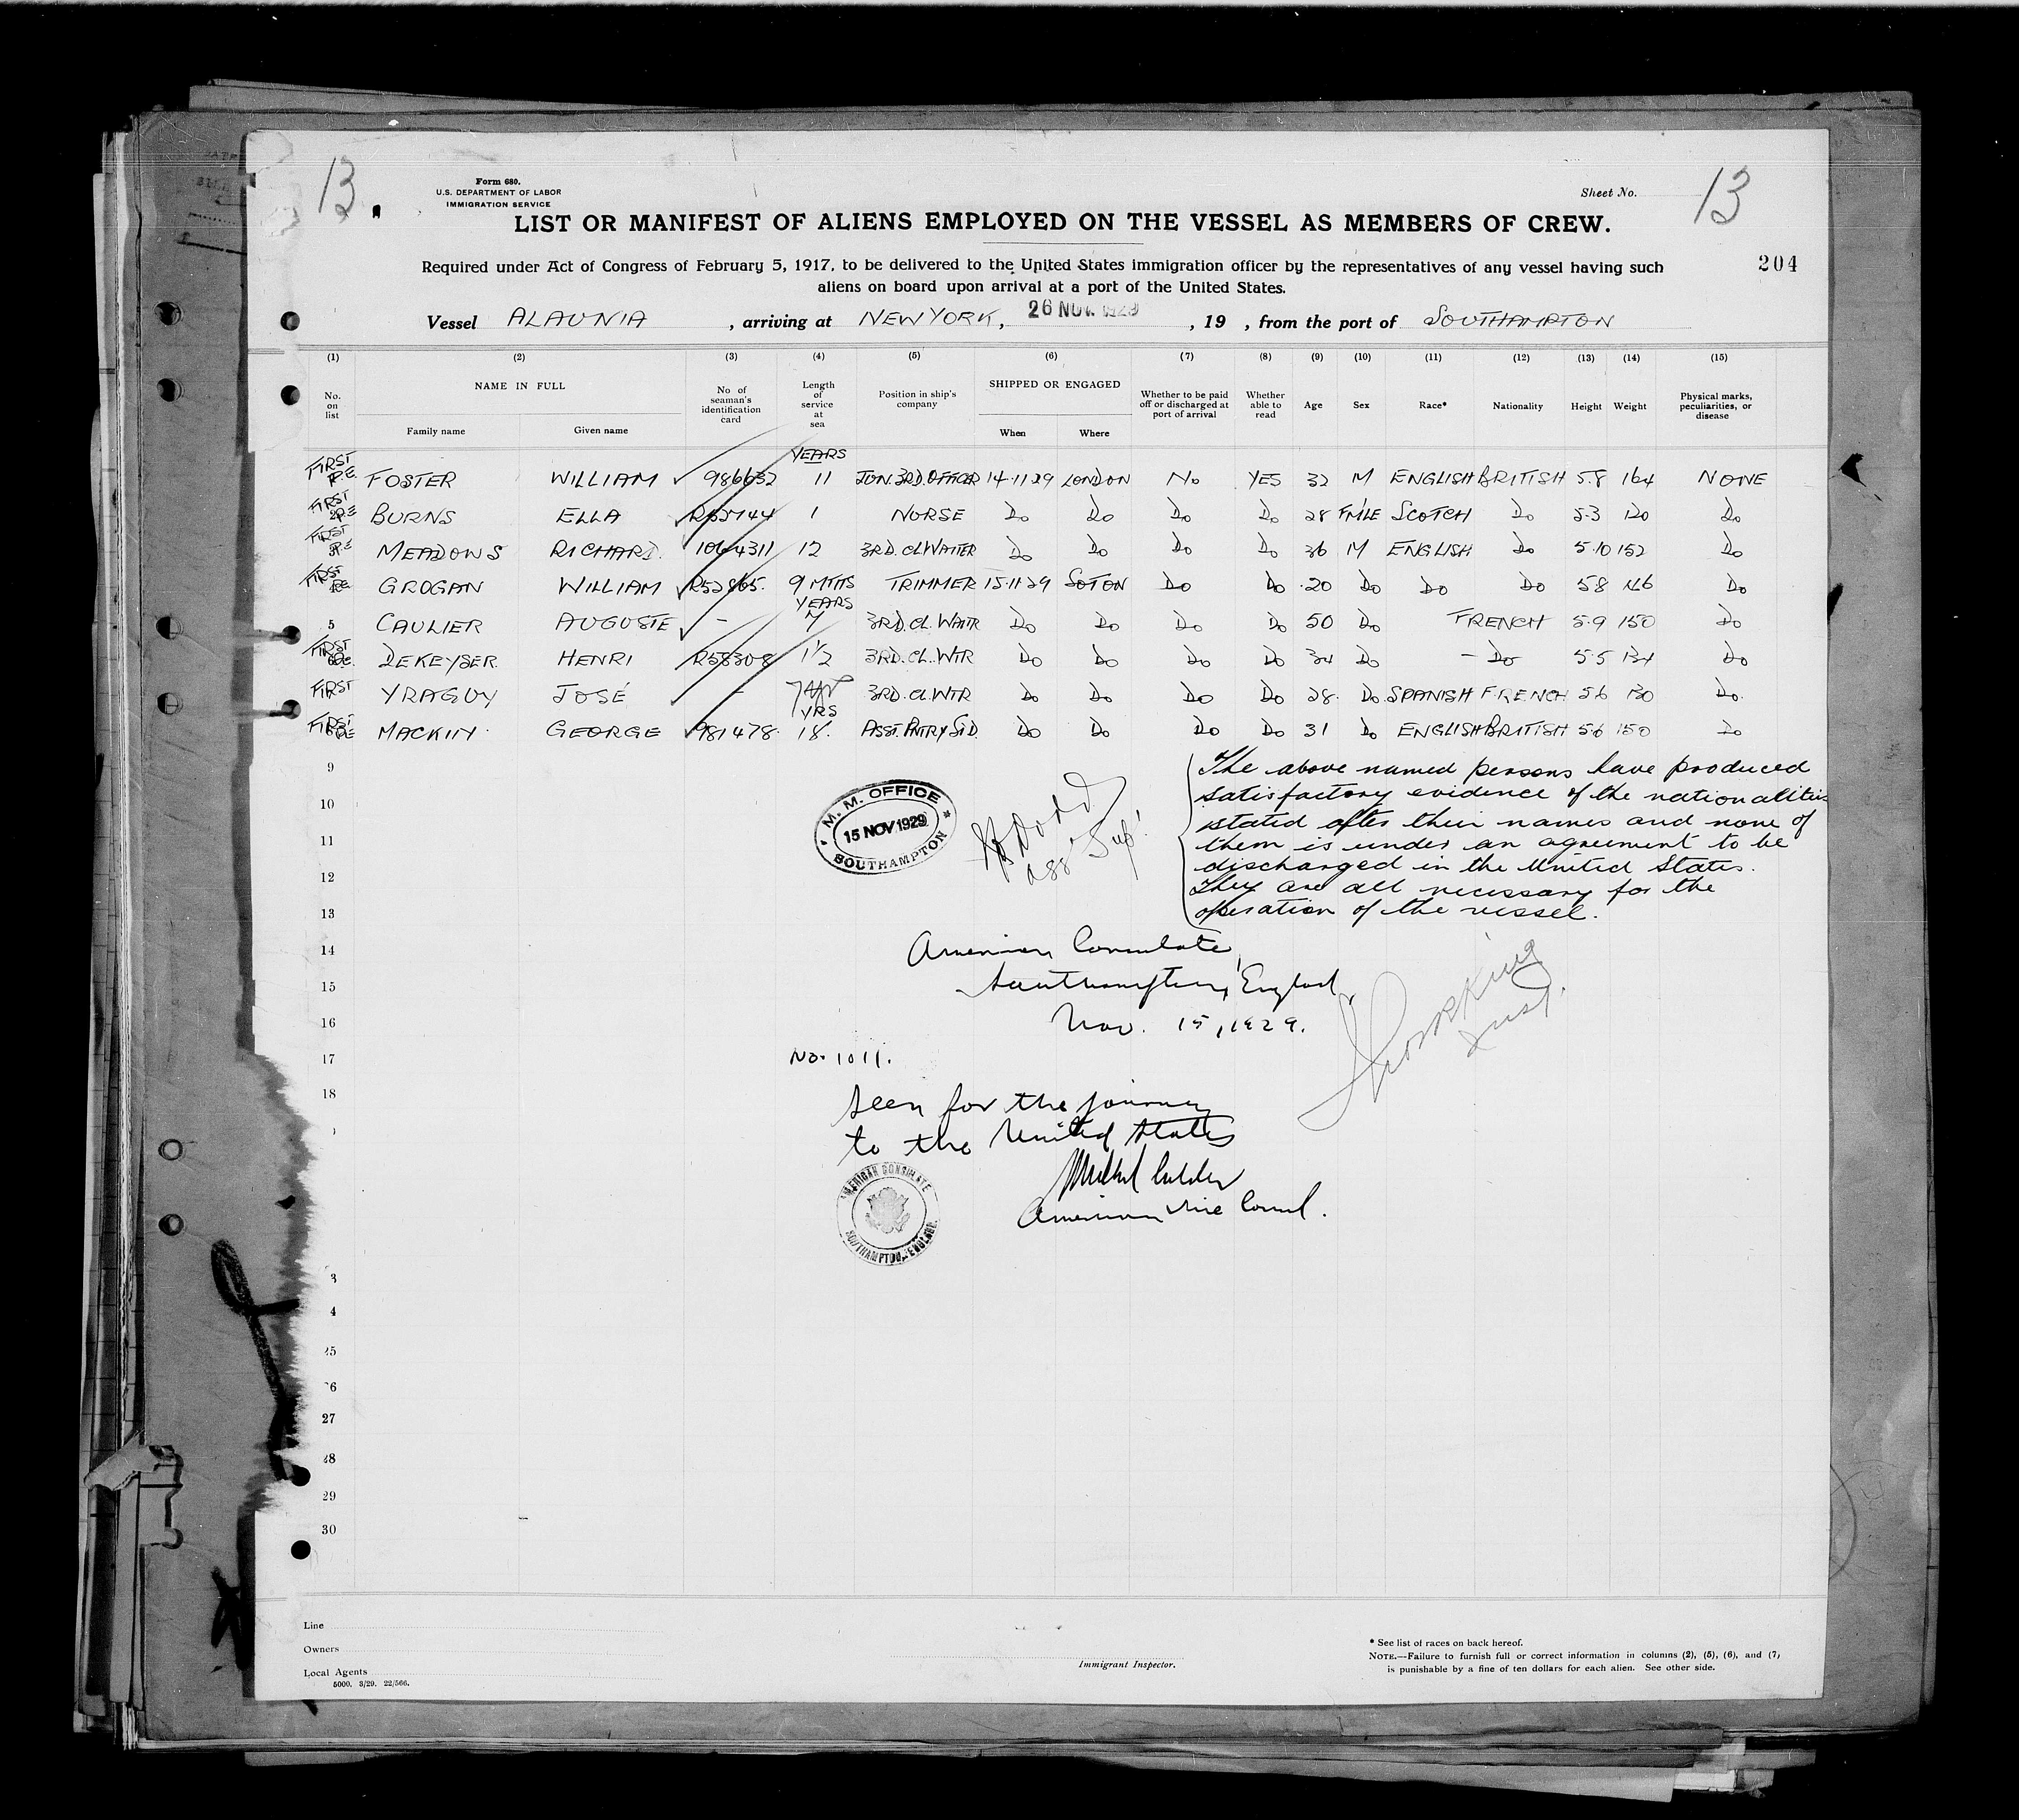 13.
Form 680.
U.S. DEPARTMENT OF LABOR
IMMIGRATION SERVICE
Sheet No. 13
LIST OR MANIFEST OF ALIENS EMPLOYED ON THE VESSEL AS MEMBERS OF CREW.
Required under Act of Congress of February 5, 1917, to be delivered to the United States immigration officer by the representatives of any vessel having such
aliens on board upon arrival at a port of the United States.
204
Vessel ALAUNIA, arriving at NEW YORK, 26 NOV. 1929, 19 , from the port of SOUTHAMPTON
(1) (2) (3) (4) (5) (6) (7) (8) (9) (10) (11) (12) (13) (14) (15)
No. on list NAME IN FULL Family name Given name No. of seaman's identification card Length of service at sea Position in ship's company SHIPPED OR ENGAGED When Where Whether to be paid off or discharged at port of arrival Whether able to read Age Sex Race* Nationality Height Weight Physical marks, peculiarities, or disease
YEARS
FIRST FOSTER WILLIAM 986632 11 JUN.3RD.OFFICER 14.11.29 LONDON No YES 32 M ENGLISH BRITISH 5.8 164 NONE
FIRST BURNS ELLA 1 NURSE Do Do Do Do 28 F'MLE SCOTCH Do 5.3 120 Do
FIRST MEADOWS RICHARD. 1064311 12 3RD.CL WAITER Do Do Do Do 36 M ENGLISH Do 5.10 152 Do
FIRST GROGAN WILLIAM R52865. 9 MTHS TRIMMER 15.11.29 SOTON Do Do 20 Do Do Do 5.8 Do
YEARS
5 CAULIER AUGUSTE - 3RD.CL.WAITR Do Do Do Do 50 Do FRENCH 5.9 150 Do
FIRST DEKEYSER. HENRI R58308 1½ 3RD.CL.WTR Do Do Do Do 34 Do - Do 5.5 134 Do
FIRST YRAGUY JOSÉ - 3RD.CL.WTR Do Do Do Do 28. Do. SPANISH FRENCH 5.6 130 Do.
YRS
FIRST GEORGE 981478 18. ASST.PNTRY STD. Do Do Do Do 31 Do ENGLISH BRITISH 5.6 150 Do
9
10
11
12
13
14
15
16
17
18
M. M. OFFICE
15 NOV 1929
SOUTHAMPTON
Dodd
Ass Sup!
The above named persons have produced
satisfactory evidence of the nationalities
stated after their names and none of
them is under an agreement to be
discharged in the United States.
They are all necessary for the
operation of the vessel.
American Consulate,
Southampton, England,
Nov. 15, 1929.
No. 1011.
Seen for the journey
to the United States
American Vice Consul.
AMERICAN CONSULATE
SOUTHAMPTON, ENGLAND.
3
4
25
26
27
28
29
30
Line
Owners
Local Agents
5000. 3/29. 22/566.
Immigrant Inspector.
* See list of races on back hereof.
NOTE.—Failure to furnish full or correct information in columns (2), (5), (6), and (7)
is punishable by a fine of ten dollars for each alien. See other side.